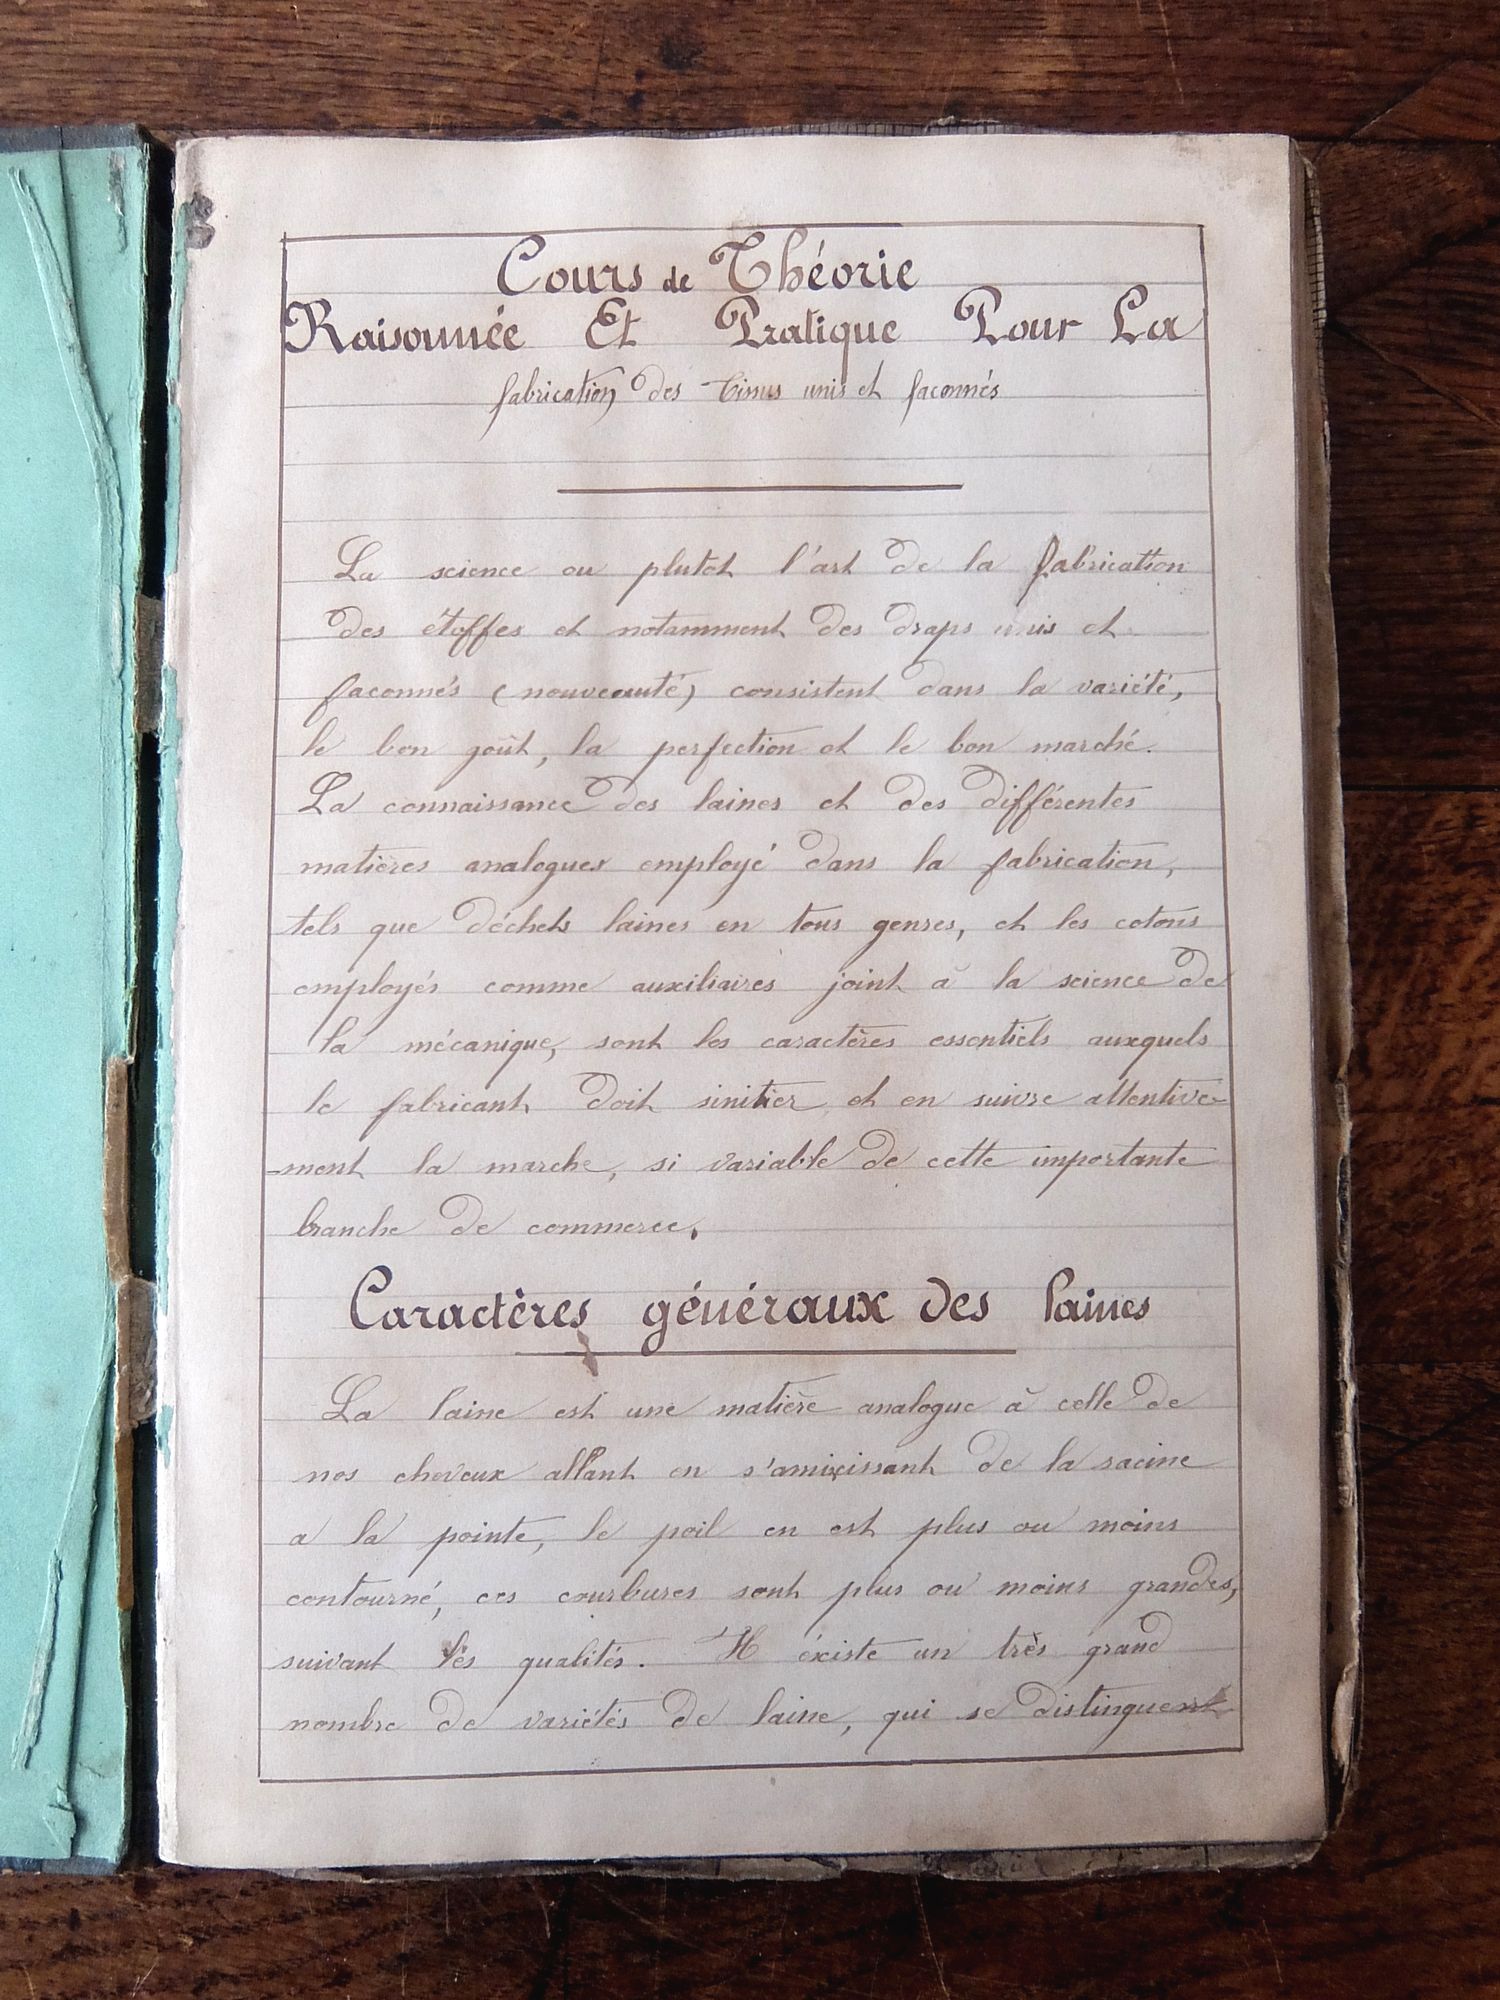 Cours de Théorie
Raisonnée Et Pratique Pour La
fabrication des tissus unis et faconnés
La science ou plutot l'art de la fabrication
des étoffes et notamment des draps unis et
faconnés (nouveauté) consistent dans la variété,
le bon goût, la perfection et le bon marché.
La connaissance des laines et des différentes
matières analogues employé dans la fabrication,
tels que déchets laines en tous genres, et les cotons
employés comme auxiliaires joint à la science de
la mécanique, sont les caractères essentiels auxquels
le fabricant doit sinitier et en suivre attentive-
-ment la marche, si variable de cette importante
branche de commerce.
Caractères généraux des laines
La laine est une matière analogue à celle de
nos cheveux allant en s'amixissant de la racine
a la pointe, le poil en est plus ou moins
contourné, ces courbures sont plus ou moins grandes,
suivant les qualités. Il éxiste un très grand
nombre de variétés de laine, qui se distinguent